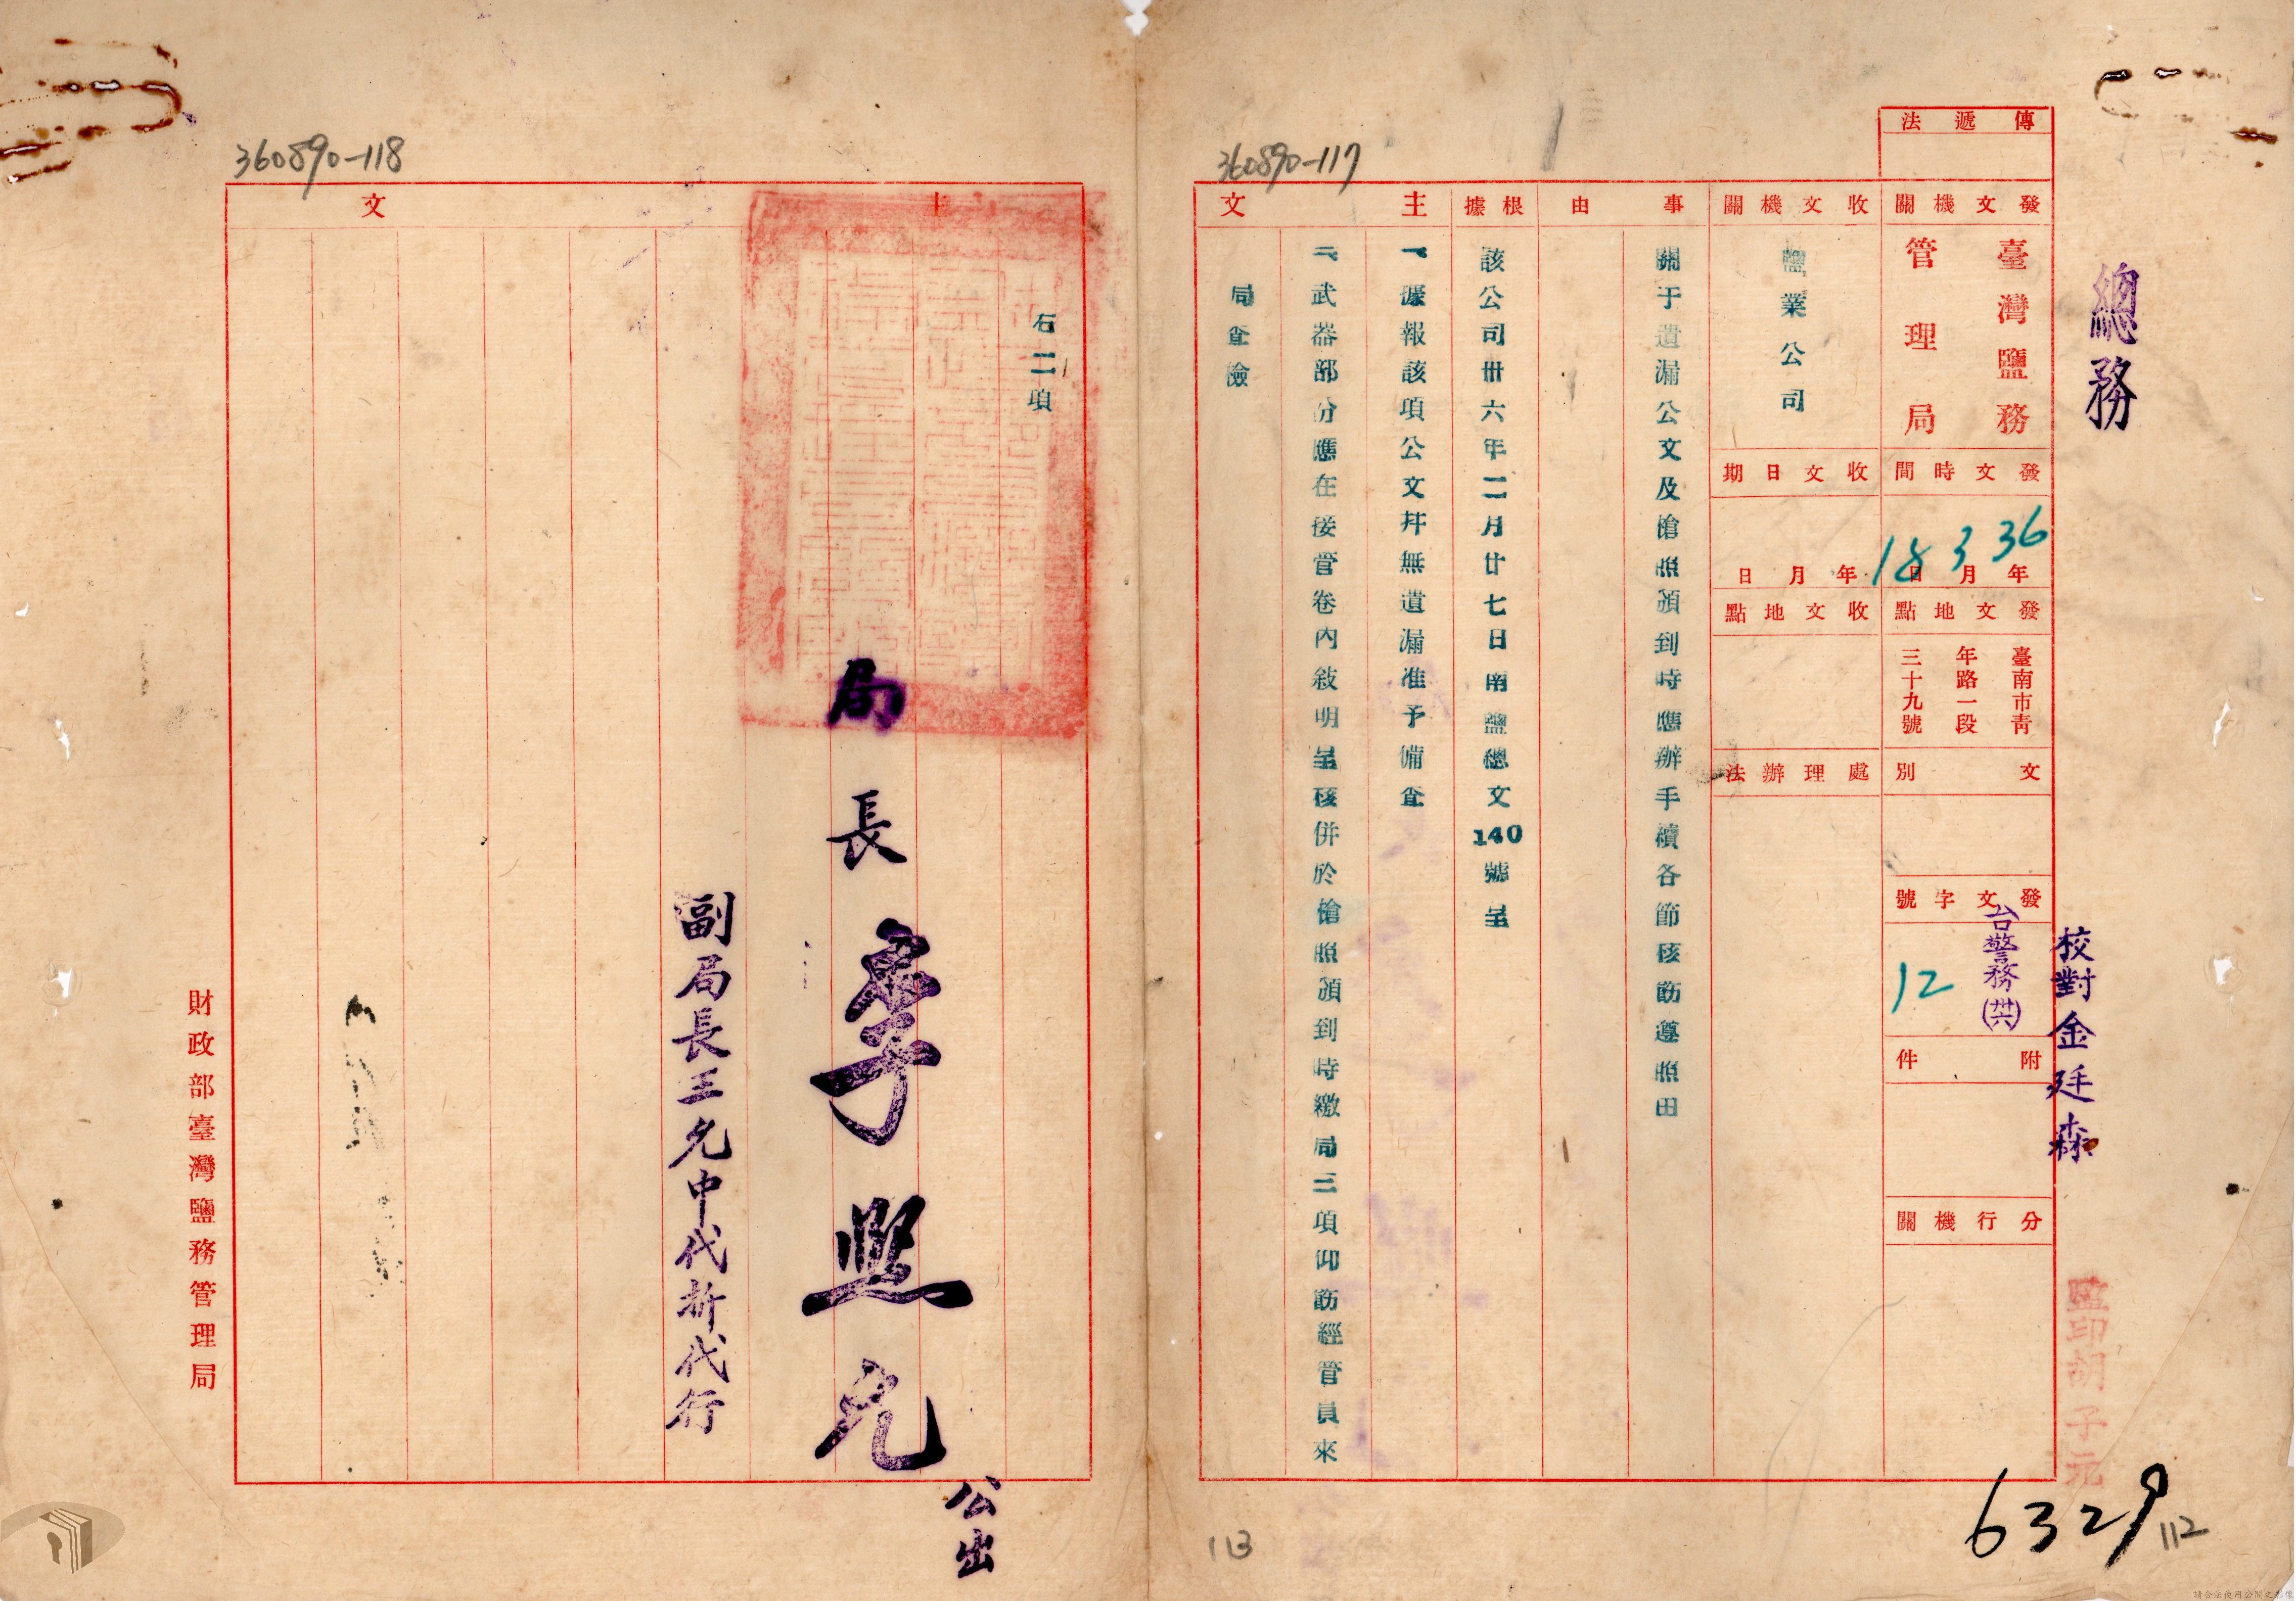 360890-117
總務
傳遞法
發文機關
臺灣鹽務
管理局
發文時間
36年3月18日
發文地點
臺南市青
年路一段
三十九號
文別
發文字號
台警務(卅六)
12
附件
分行機關
校對金廷森
監印胡子元
6329
112
收文機關
鹽業公司
收文日期
年月日
收文地點
處理辦法
事由
關于遺漏公文及槍照頒到時應辦手續各節核飭遵照由
根據
該公司卅六年二月廿七日南鹽總文140號呈
主文
一、據報該項公文并無遺漏准予備查
二、武器部份應在接管卷內敍明呈核併於槍照頒到時繳局三項仰飭經管員來
局查驗
113
360890-118
主文
右二項
局長李熙允
公出
副局長王允中代拆代行
財政部臺灣鹽務管理局
請合法使用公開之影像